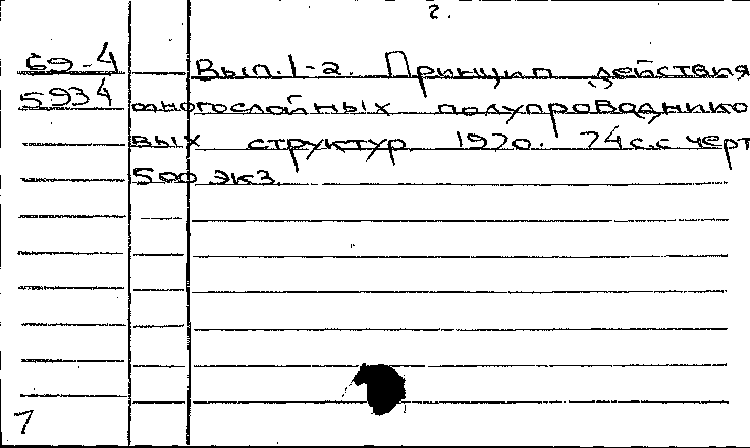 2.
69-4 Вып. 1-2. Принцип действия
5934 многослойных полупроводнико
вых структур 1970. 74 с. с черт
500 экз.
7